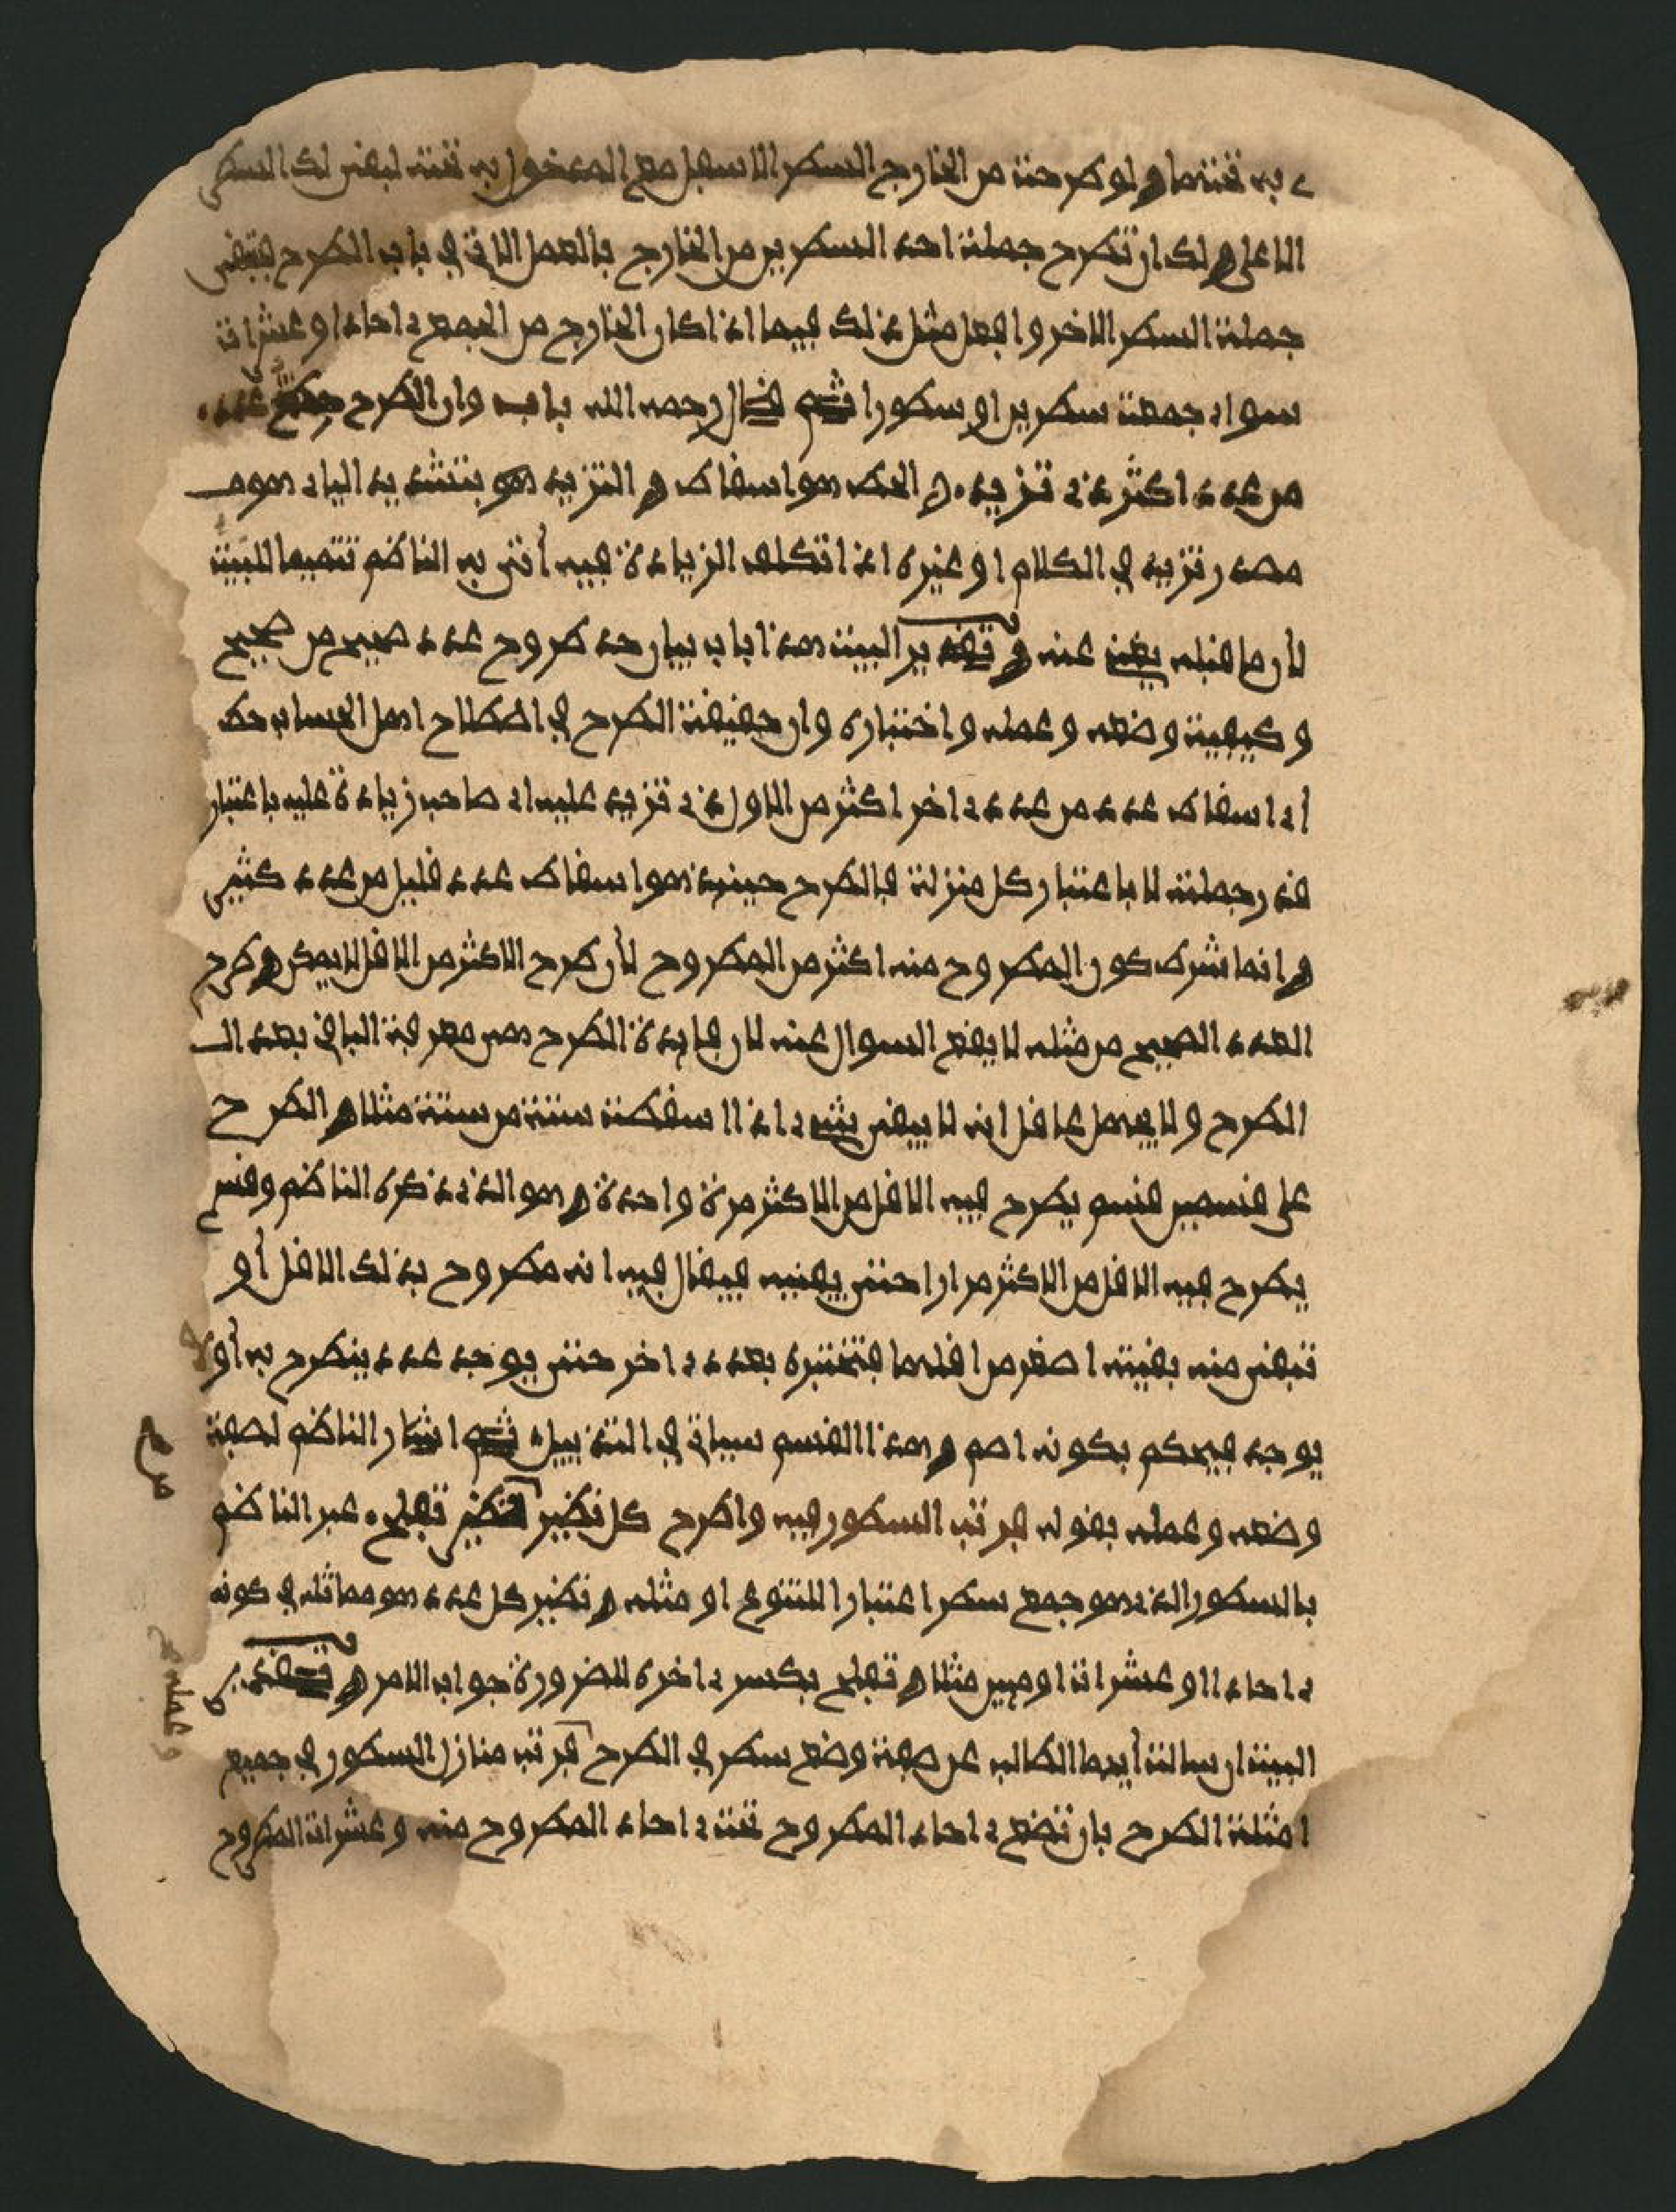 به تحتها ولو طرحت من الخارج السطر الاسفل مع المدخول به تحته لبقى لك السطر
الاعلى ولك ان تطرح جملة احد السطرين من الخارج بالعمل الاتي في باب الطرح فيبقى
جملة السطر الاخر وافعل مثل ذلك فيما اذا كان الخارج من الجمع ءاحادا او عشرات
سواء جمعت سطرين او سطورا ثم قال رحمه الله باب وان الطرح عدد
من عدد اكثر ذي تزيد الحط هو اسقاط والتزيد بتشديد الياء هو
مصدر تزيد في الكلام او غيره اذا تكلف الزيادة فيه أتى به الناظم تتميما للبيت
لأن ما قبله يغني عنه وتقدير البيت هذا باب بيان حد طروح عدد صحيح من صحيح
وكيفية وضعه وعمله واختباره وان حقيقة الطرح في اصطلاح اهل الحساب حط
أي اسقاط عدد من عدد ءاخر اكثر من الاول ذي تزيد عليه اي صاحب زيادة عليه باعتبار
قدر جملته لا باعتبار كل منزلة فالطرح حينئذ هو اسقاط عدد قليل من عدد كثير
وانما شرط كون المطروح منه اكثر من المطروح لأن طرح الاكثر من الاقل لا يمكن وطرح
العدد الصحيح من مثله لا يقع السوال عنه لان فايدة الطرح هي معرفة الباقي بعد الـ
الطرح ولا يجهل عاقل انه لا يبقى شيء اذا اسقطت ستة من ستة مثلا والطرح
على قسمين قسم يطرح فيه الاقل من الاكثر مرة واحدة وهو الذي ذكره الناظم وقسم
يطرح فيه الاقل من الاكثر مرارا حتى يفنيه فيقال فيه انه مطروح بذلك الاقل أو
تبقى منه بقية اصغر من اقلها فتختبره بعدد ءاخر حتى يوجد عدد ينطرح به أو لا
يوجد فيحكم بكونه اصم وهذا القسم سياتي في التذييل ثم اشار الناظم لصفة
وضعه وعمله بقوله فرتب السطور فيه واطرح كل نظير تفلح عبر الناظم
بالسطور الذي هو جمع سطر اعتبارا للتنوع او مثله ونظير كل عدد هو مماثله في كونه
ءاحادا او عشرات او ميين مثلا وتفلح بكسر ءاخره للضرورة جواب الامر وتقدير
البيت ان سالت أيها الطالب عن صفة وضع سطر في الطرح فرتب منازل السطور في جميع
امثلة الطرح بان تضع ءاحاد المطروح تحت ءاحاد المطروح منه وعشرات المطروح
وعمله